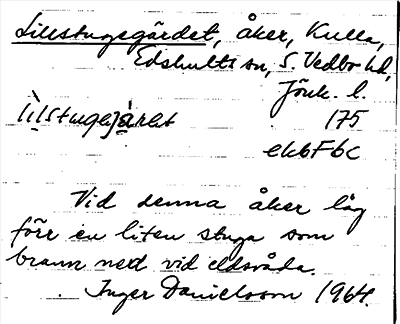 Lillstugegärdet, åker, Kulla,
Edshults sn, S. Vedbo hd,
Jönk. l.
lilstugejäret 175
ekbFbc
Vid denna åker låg
förr en liten stuga som
brann ned vid eldsvåda.
Inger Danielsson 1964.